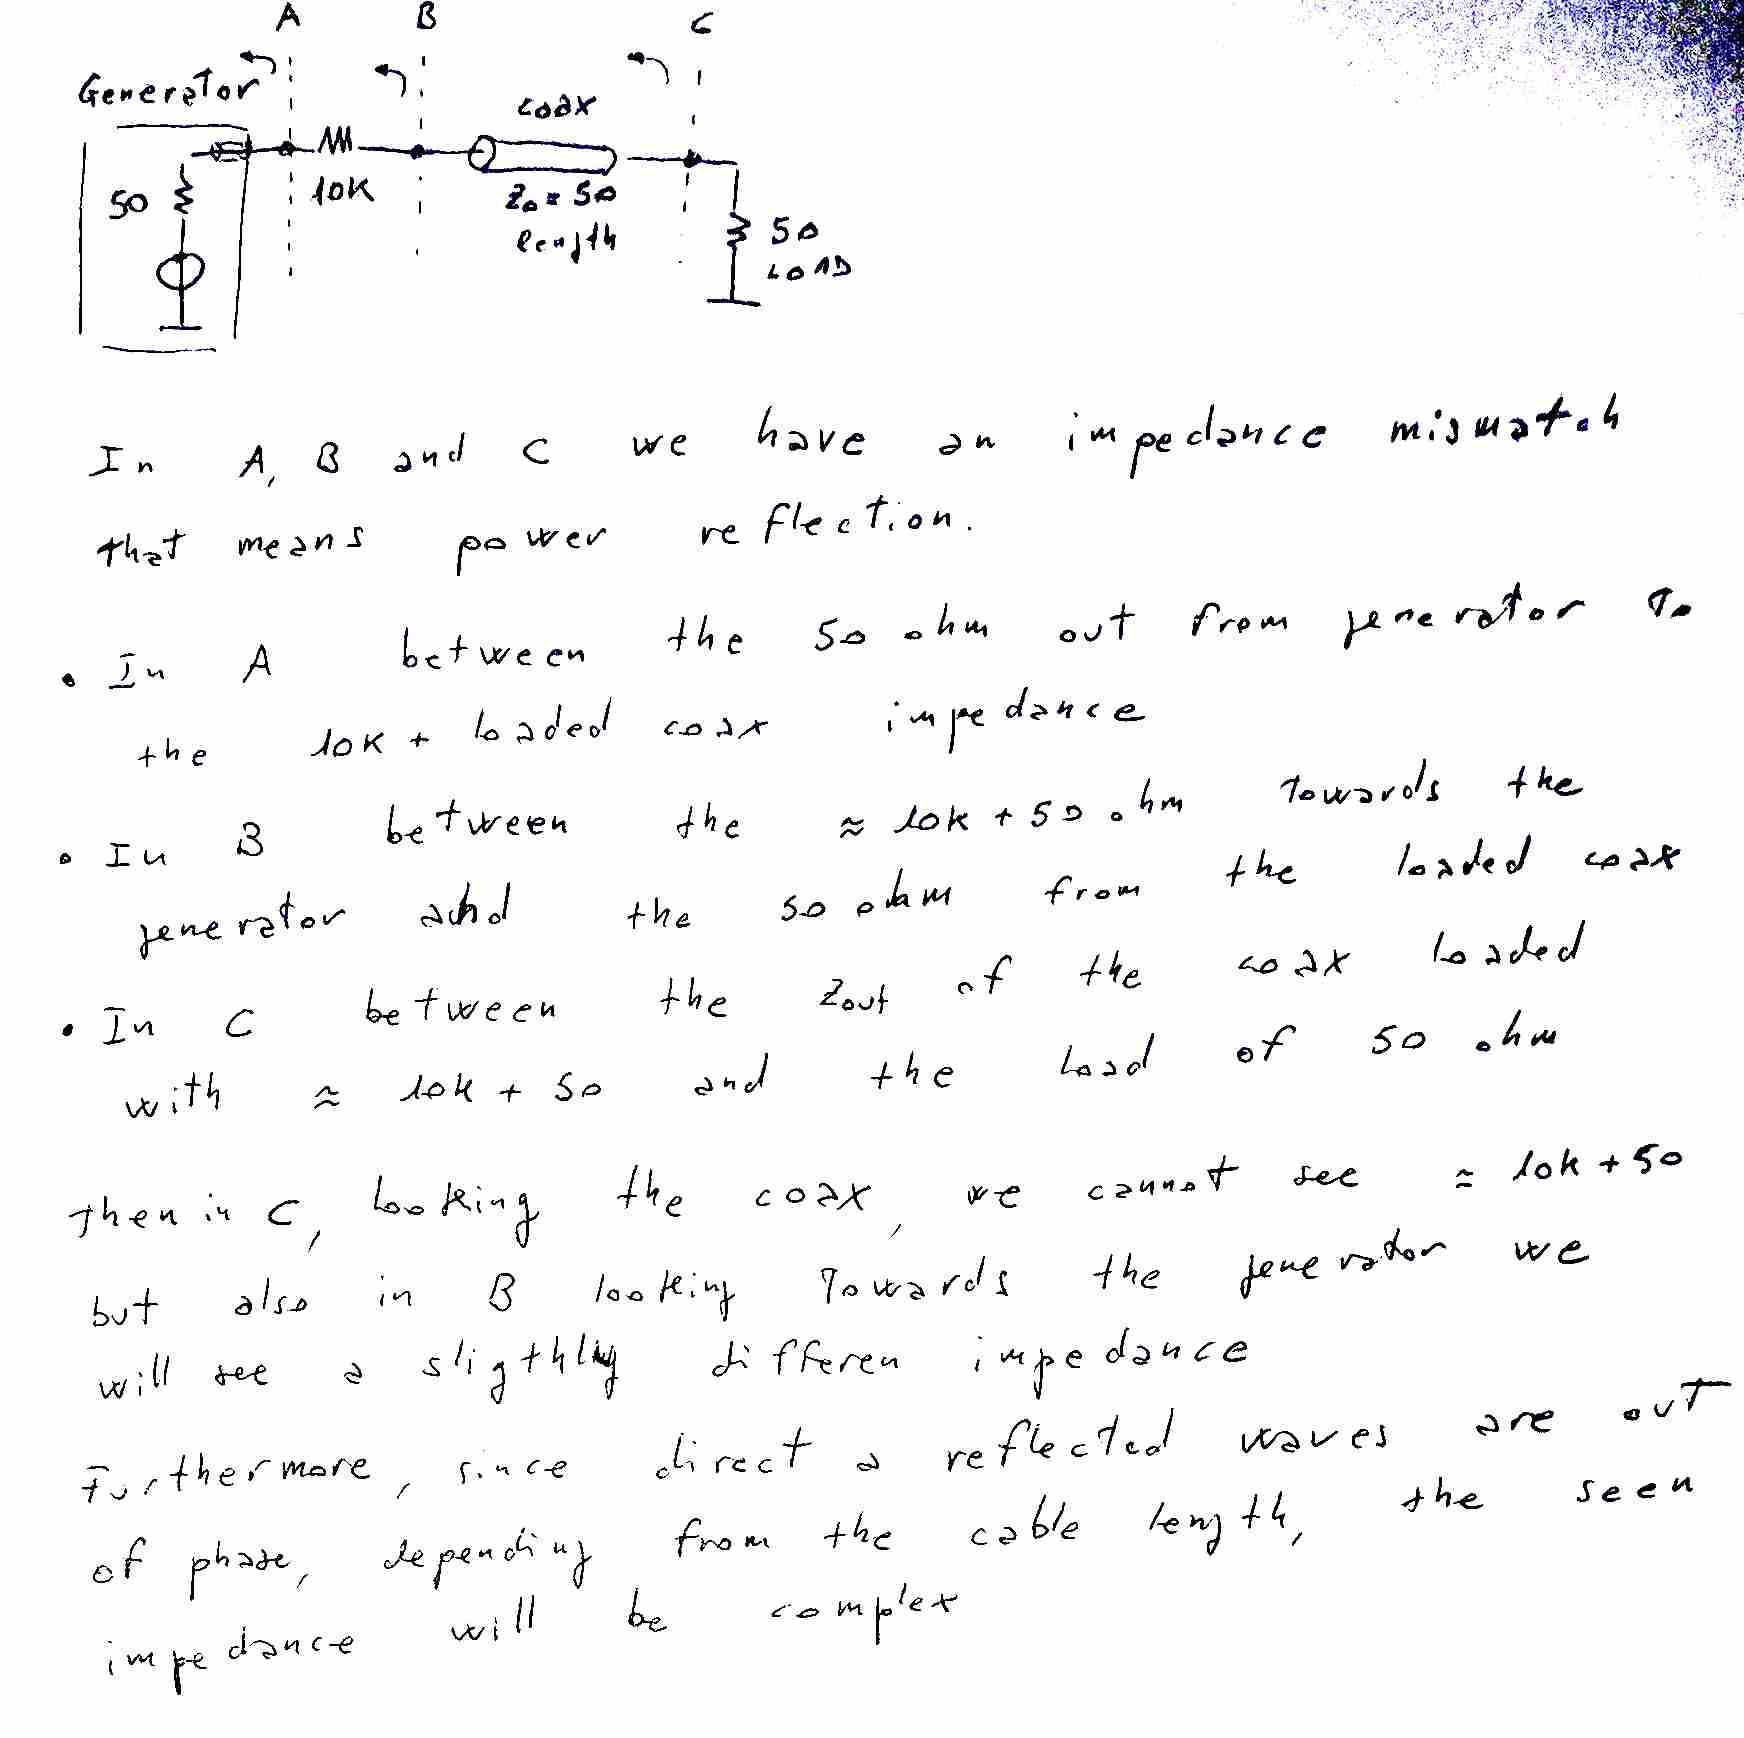 A B C
Generator
coax
50
10K
Z₀ = 50
length
50
LOAD
In A, B and C we have an impedance mismatch
that means power reflection.
• In A between the 50 ohm out from generator to
the 10K + loaded coax impedance
• In B between the ≈ 10K + 50 ohm towards the
generator and the 50 ohm from the loaded coax
• In C between the Zout of the coax loaded
with ≈ 10K + 50 and the load of 50 ohm
Then in C, looking the coax, we cannot see ≈ 10K + 50
but also in B looking towards the generator we
will see a sligthly differen impedance
Furthermore, since direct a reflected waves are out
of phase, depending from the cable length, the seen
impedance will be complex